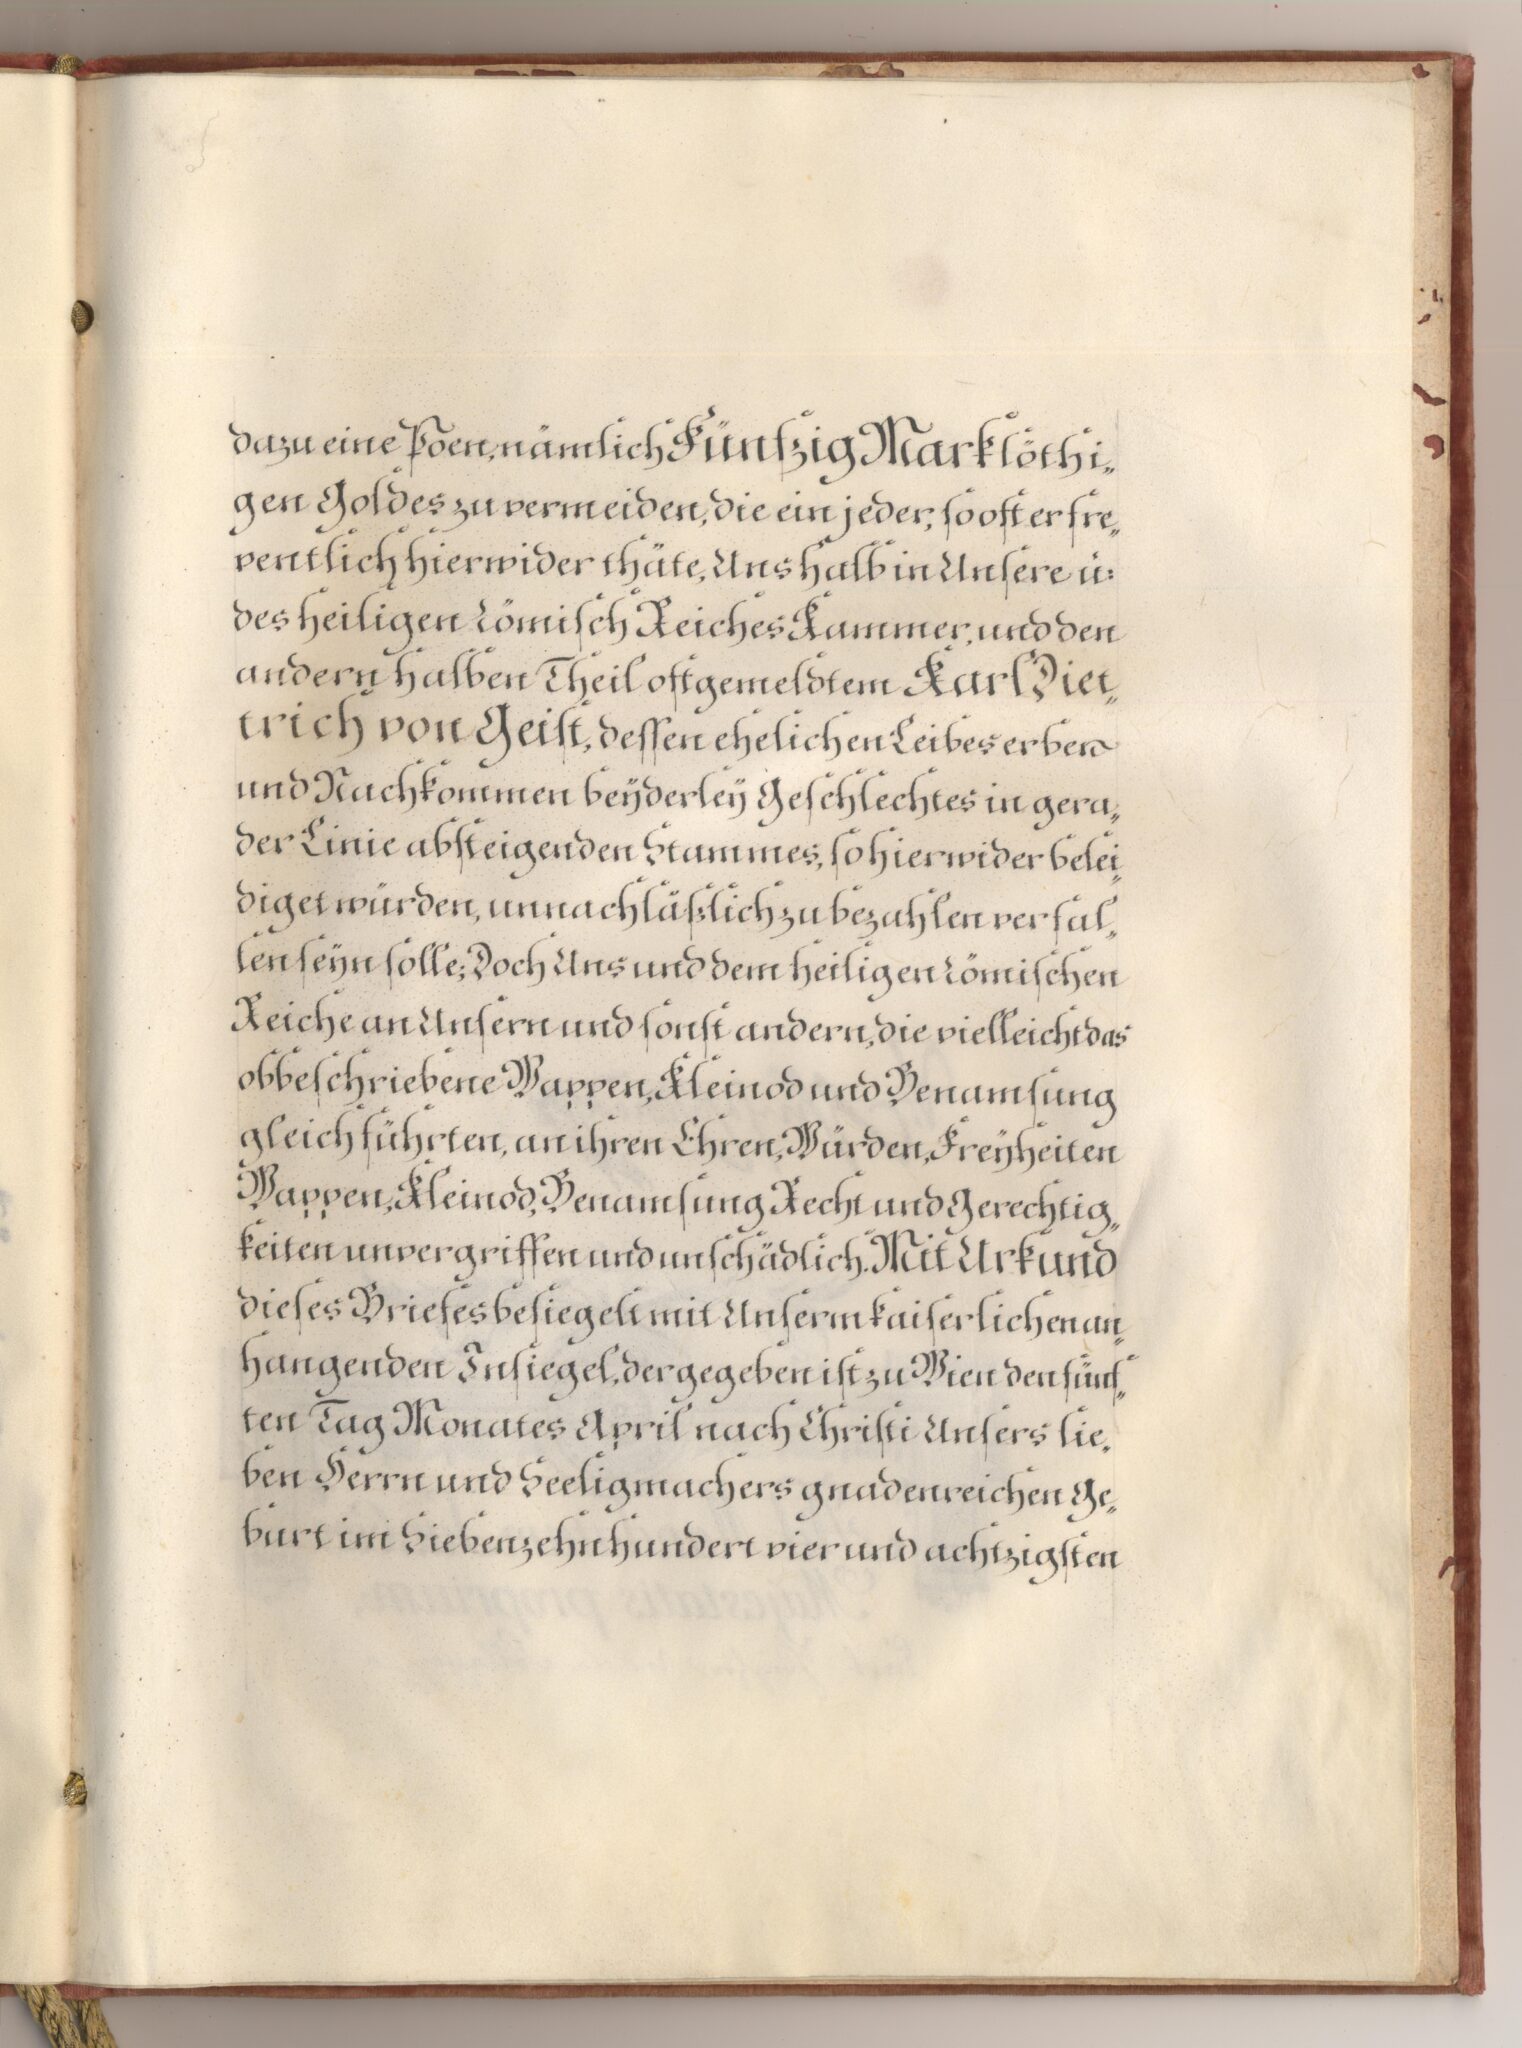 dazu eine Poen, nämlich Fünfzig Mark löthi„
gen Goldes zu vermeiden, die ein jeder, so oft er fre„
ventlich hierwider thäte, Uns halb in Unsere u:
des heiligen Römisch Reiches Kammer, und den
andern halben Theil oftgemeldtem Karl Diet„
trich von Geist, dessen ehelichen Leibeserben
und Nachkommen beyderley Geschlechtes in gera„
der Linie absteigenden Stammes, so hierwider belei„
diget würden, unnachläßlich zu bezahlen verfal„
len seyn solle; Doch Uns und dem heiligen Römischen
Reiche an Unsern und sonst andern, die vielleicht das
obbeschriebene Wappen, Kleinod und Benamsung
gleich führten, an ihren Ehren, Würden, Freyheiten
Wappen, Kleinod, Benamsung Recht und Gerechtig„
keiten unvergriffen und unschädlich. Mit Urkund
dieses Briefes besiegelt mit Unserm kaiserlichen an„
hangenden Insiegel, der gegeben ist zu Wien den fünf„
ten Tag Monates April nach Christi Unsers lie„
ben Herrn und Seeligmachers gnadenreichen Ge„
burt im Siebenzehnhundert vier und achtzigsten